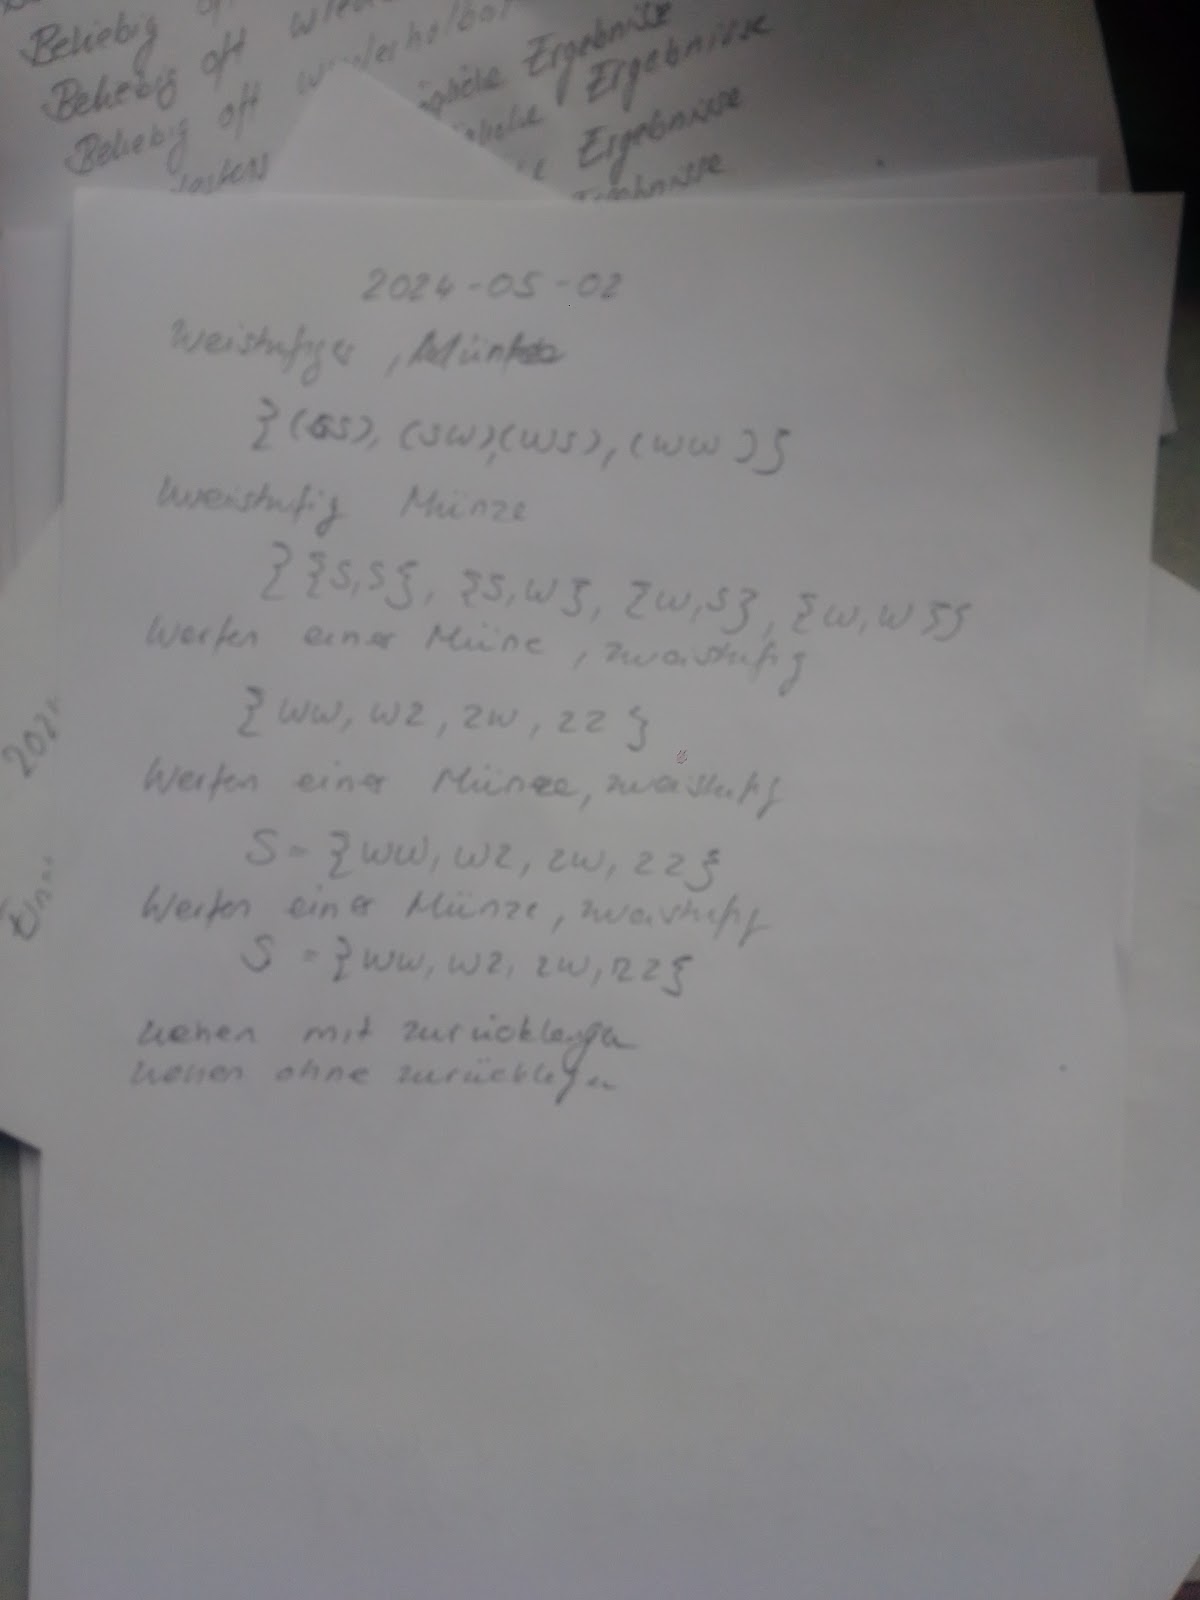 Beliebig
Beliebig oft
Beliebig oft Ergebnisse
Ergebnisse
Ergebnisse
Ergebnisse
2024-05-02
Weistufiger, Münze
{(SS), (SW),(WS), (WW)}
zweistufig Münze
{{S,S}, {S,W}, {W,S}, {W,W}}
Werfen einer Müne, zweistufig
{WW, WZ, ZW, ZZ}
Werfen einer Münze, zweistufig
S = {WW, WZ, ZW, ZZ}
Werfen einer Münze, zweistufig
S = {WW, WZ, ZW, ZZ}
ziehen mit zurücklegen
ziehen ohne zurücklegen